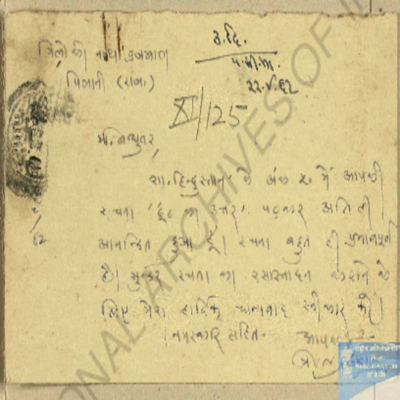 त्रिलोकी नाथ ब्रजबाल
पिलानी (राज.)
उ. दि.
२२.५.६२
XI/125
मा. बन्धुवर,
सा. हिन्दुस्तान के अंक २० में आपकी
रचना 'ईंट का उत्तर' पढ़कर अति ही
आनन्दित हुआ हूँ। रचना बहुत ही प्रभावपूर्ण
है। सुन्दर रचना का रसास्वादन कराने के
लिए मेरा हार्दिक धन्यवाद स्वीकार करें।
नमस्कार सहित-
आपका
62
NATIONAL ARCHIVES OF